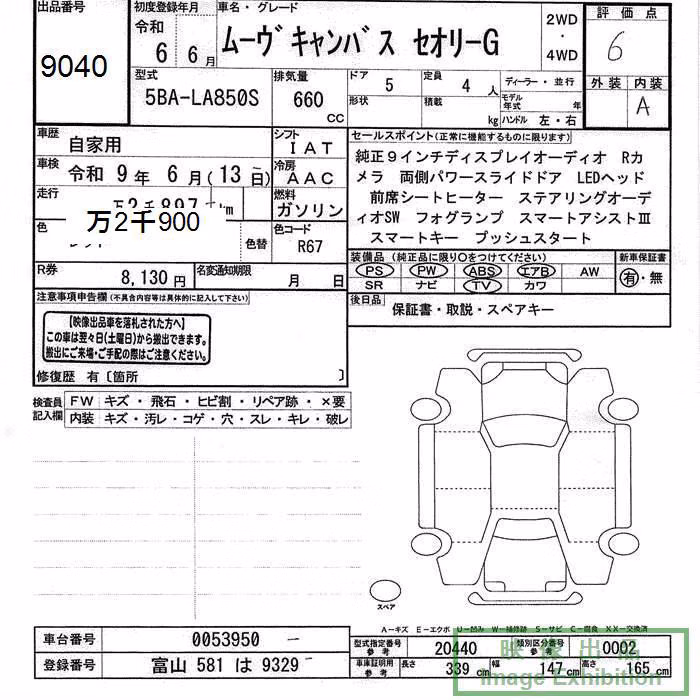 出品番号
9040
初度登録年月
令和
6 6月
車名・グレード
ムーヴキャンバス セオリーG
2WD
・
4WD
評価点
6
外装 内装
A
型式
5BA-LA850S
排気量
660 CC
ドア 5
定員 4 人
形状
積載 kg
ディーラー・並行
モデル年式 年
ハンドル 左・右
車歴 自家用
シフト IAT
車検 令和 9年 6月(13日)
冷房 AAC
走行
万2千900
燃料 ガソリン
色
色替
色コード R67
R券 8,130円
名変通知期限 月 日
セールスポイント(正常に機能するものに限ります)
純正9インチディスプレイオーディオ Rカ
メラ 両側パワースライドドア LEDヘッド
前席シートヒーター ステアリングオーデ
ィオSW フォグランプ スマートアシストⅢ
スマートキー プッシュスタート
装備品(純正品に限り○をつけてください)
PS PW ABS エアB AW
SR ナビ TV カワ
新車保証書
有・無
後日品 保証書・取説・スペアキー
注意事項申告欄(不具合内容等は具体的に記入して下さい)
【映像出品車を落札された方へ】
この車は翌々日(土曜日)から搬出できます。
搬出にご来場・ご手配の際はご注意ください。
修復歴 有〔箇所 〕
検査員記入欄
FW キズ・飛石・ヒビ割・リペア跡・×要
内装 キズ・汚レ・コゲ・穴・スレ・キレ・破レ
スペア
A-キズ E-エクボ U-凹み W-補修跡 S-サビ C-腐食 XX-交換済
車台番号 0053950
登録番号 富山 581 は 9329
型式指定番号 参考 20440
類別区分番号 参考 0002
車庫証明用 参考 長さ 339 cm 幅 147 cm 高さ 165 cm
映像出品
Image Exhibition